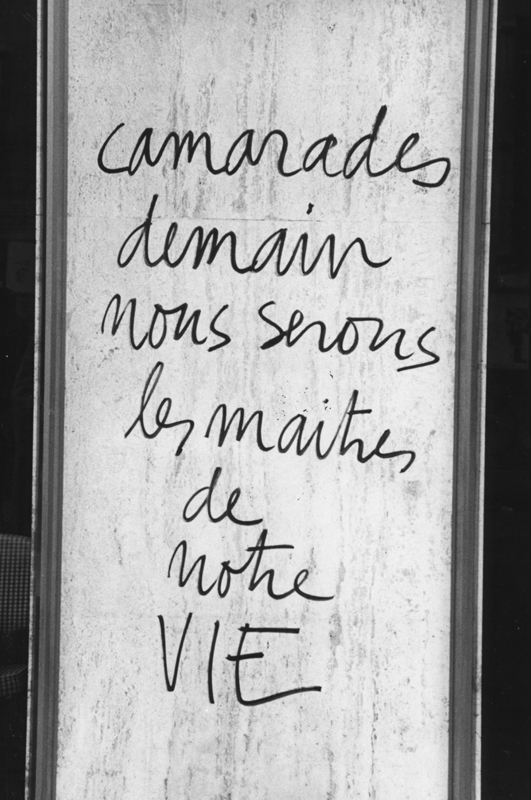 camarades
demain
nous serons
les maitres
de
notre
VIE